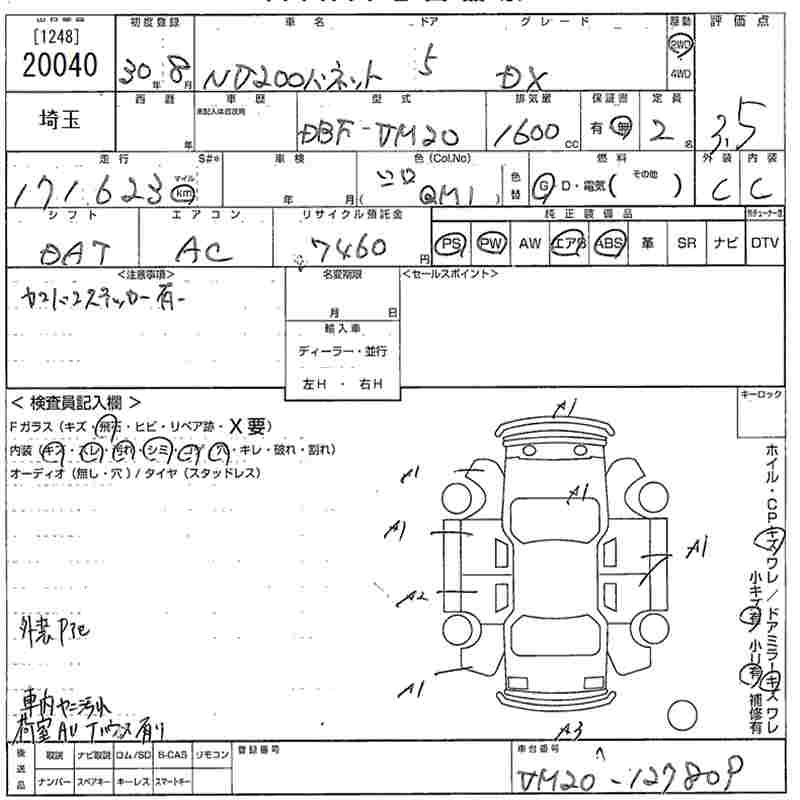 [1248]
20040
初度登録 車名 ドア グレード 駆動 評価点
30年8月 NV200バネット 5 DX 2WD 4WD 3.5
埼玉
西暦 車歴 型式 排気量 保証書 定員
年 未記入は自家用 DBF-VM20 1600cc 有・無 2名
走行 S#* 車検 色(Col.No) 色替 燃料 外装 内装
171,623 マイル km 年 月 (シロ QM1) G・D・電気(その他 ) C C
シフト エアコン リサイクル預託金 純正装備品
DAT AC 7460円 PS PW AW エアB ABS 革 SR ナビ DTV
<注意事項> 名変期限 <セールスポイント>
月 日
輸入車
ディーラー・並行
左H・右H
<検査員記入欄> キーロック
Fガラス(キズ・飛石・ヒビ・リペア跡・X要)
内装(キズ・スレ・汚れ・シミ・コゲ・穴・キレ・破れ・割れ)
オーディオ(無し・穴)/タイヤ(スタッドレス)
A1
A1
A1
A1
A1
A2
A1
A3
ホイル・CPキズワレ/ドアミラーキズワレ
小キズ有/小リ有/補修有
車内ヤニ汚れ
後送品 取説 ナビ取説 ロム/SD B-CAS リモコン 登録番号 車台番号
ナンバー スペアキー キーレス スマートキー VM20-127809